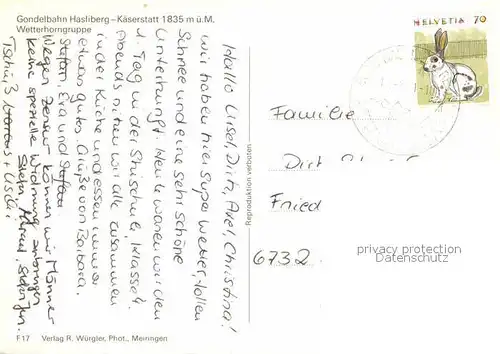 Gondelbahn Hasliberg – Käserstatt 1835 m ü.M.
Wetterhorngruppe
HELVETIA 70
Hallo Ursel, Dirk, Axel, Christina!
wir haben hier super Wetter, tollen
Schnee und eine sehr schöne
Unterkunft. Heute waren wir den
1. Tag in der Skischule, Klasse 2.
Abends sitzen wir alle zusammen
in der Küche und essen immer
etwas gutes. Grüße von Barbara,
Stefan, Eva und
Wegen Zensur können wir Männer
keine spezielle Widmung anbringen
Reproduktion verboten
Familie
Dirk
Fried
6732
privacy protection
Datenschutz
F 17 Verlag R. Würgler, Phot., Meiringen